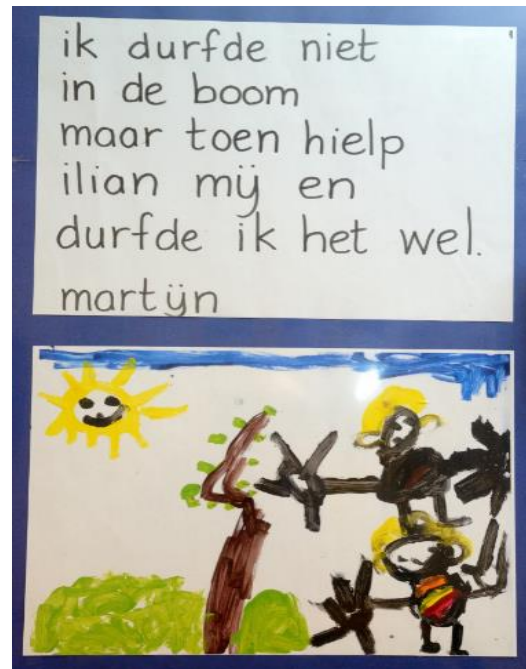 ik durfde niet
in de boom
maar toen hielp
ilian mij en
durfde ik het wel.
martijn